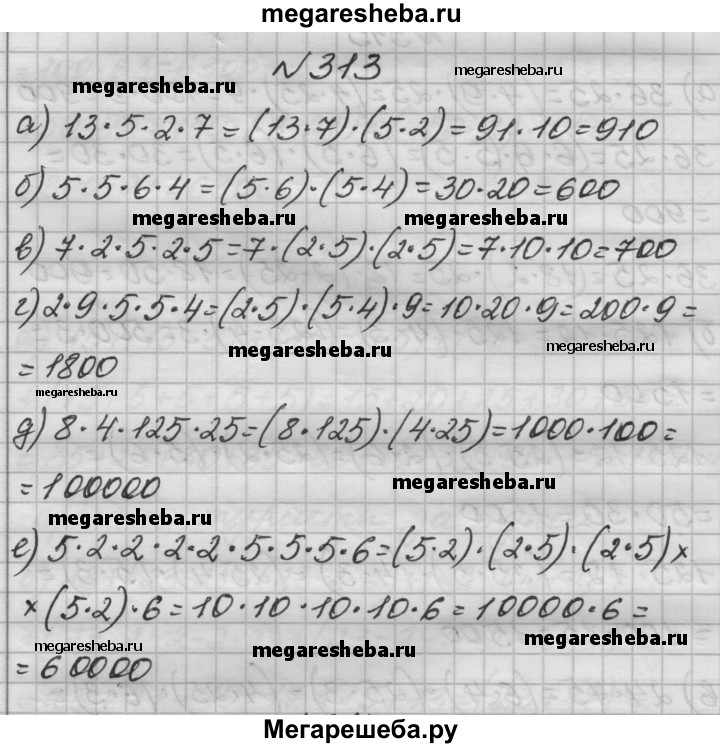 megaresheba.ru
№313
megaresheba.ru
megaresheba.ru
а) 13·5·2·7=(13·7)·(5·2)=91·10=910
б) 5·5·6·4=(5·6)·(5·4)=30·20=600
megaresheba.ru megaresheba.ru
в) 7·2·5·2·5=7·(2·5)·(2·5)=7·10·10=700
г) 2·9·5·5·4=(2·5)·(5·4)·9=10·20·9=200·9=
megaresheba.ru megaresheba.ru
=1800
megaresheba.ru
д) 8·4·125·25=(8·125)·(4·25)=1000·100=
=100000 megaresheba.ru
megaresheba.ru
е) 5·2·2·2·2·5·5·5·6=(5·2)·(2·5)·(2·5)×
×(5·2)·6=10·10·10·10·6=10000·6=
megaresheba.ru megaresheba.ru megaresheba.ru
=60000
Мегарешеба.ру